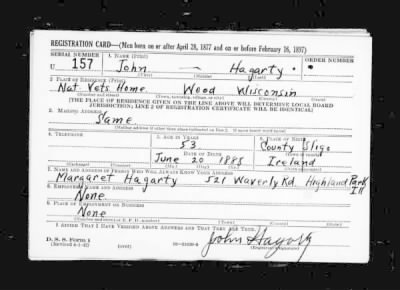 REGISTRATION CARD—(Men born on or after April 28, 1877 and on or before February 16, 1897)
SERIAL NUMBER 1. NAME (Print) ORDER NUMBER
U 157 John — Hagarty
(First) (Middle) (Last)
2. PLACE OF RESIDENCE (Print)
Nat Vets Home Wood Wisconsin
(Number and street) (Town, township, village, or city) (County) (State)
[THE PLACE OF RESIDENCE GIVEN ON THE LINE ABOVE WILL DETERMINE LOCAL BOARD
JURISDICTION; LINE 2 OF REGISTRATION CERTIFICATE WILL BE IDENTICAL]
3. MAILING ADDRESS
Same
[Mailing address if other than place indicated on line 2. If same insert word same]
4. TELEPHONE 5. AGE IN YEARS 6. PLACE OF BIRTH
53 County Sligo
DATE OF BIRTH (Town or county)
June 20 1885 Ireland
(Exchange) (Number) (Mo.) (Day) (Yr.) (State or country)
7. NAME AND ADDRESS OF PERSON WHO WILL ALWAYS KNOW YOUR ADDRESS
Margaret Hagarty 521 Waverly Rd. Highland Park
Ill
8. EMPLOYER'S NAME AND ADDRESS
None
9. PLACE OF EMPLOYMENT OR BUSINESS
None
(Number and street or R. F. D. number) (Town) (County) (State)
I AFFIRM THAT I HAVE VERIFIED ABOVE ANSWERS AND THAT THEY ARE TRUE.
D. S. S. Form 1
(Revised 4-1-42) (over) John Hagarty
(Registrant's signature)